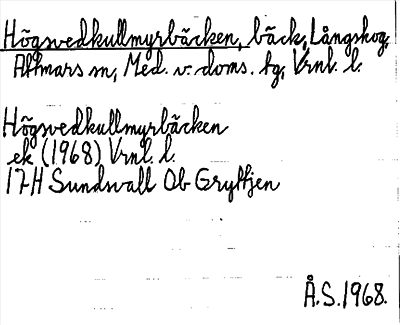 Högsvedkullmyrbäcken, bäck, Långskog,
Attmars sn, Med. v. doms. tg, Vrnl. l.
Högsvedkullmyrbäcken
ek (1968) Vrnl. l.
17H Sundsvall 0b Gryttjen
Å.S. 1968.